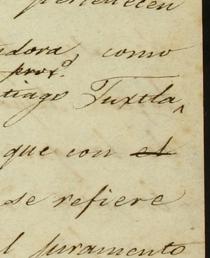 pertenecen
adora, como
prox.º
tiago Tuxtla
que con el
se refiere
l juramento